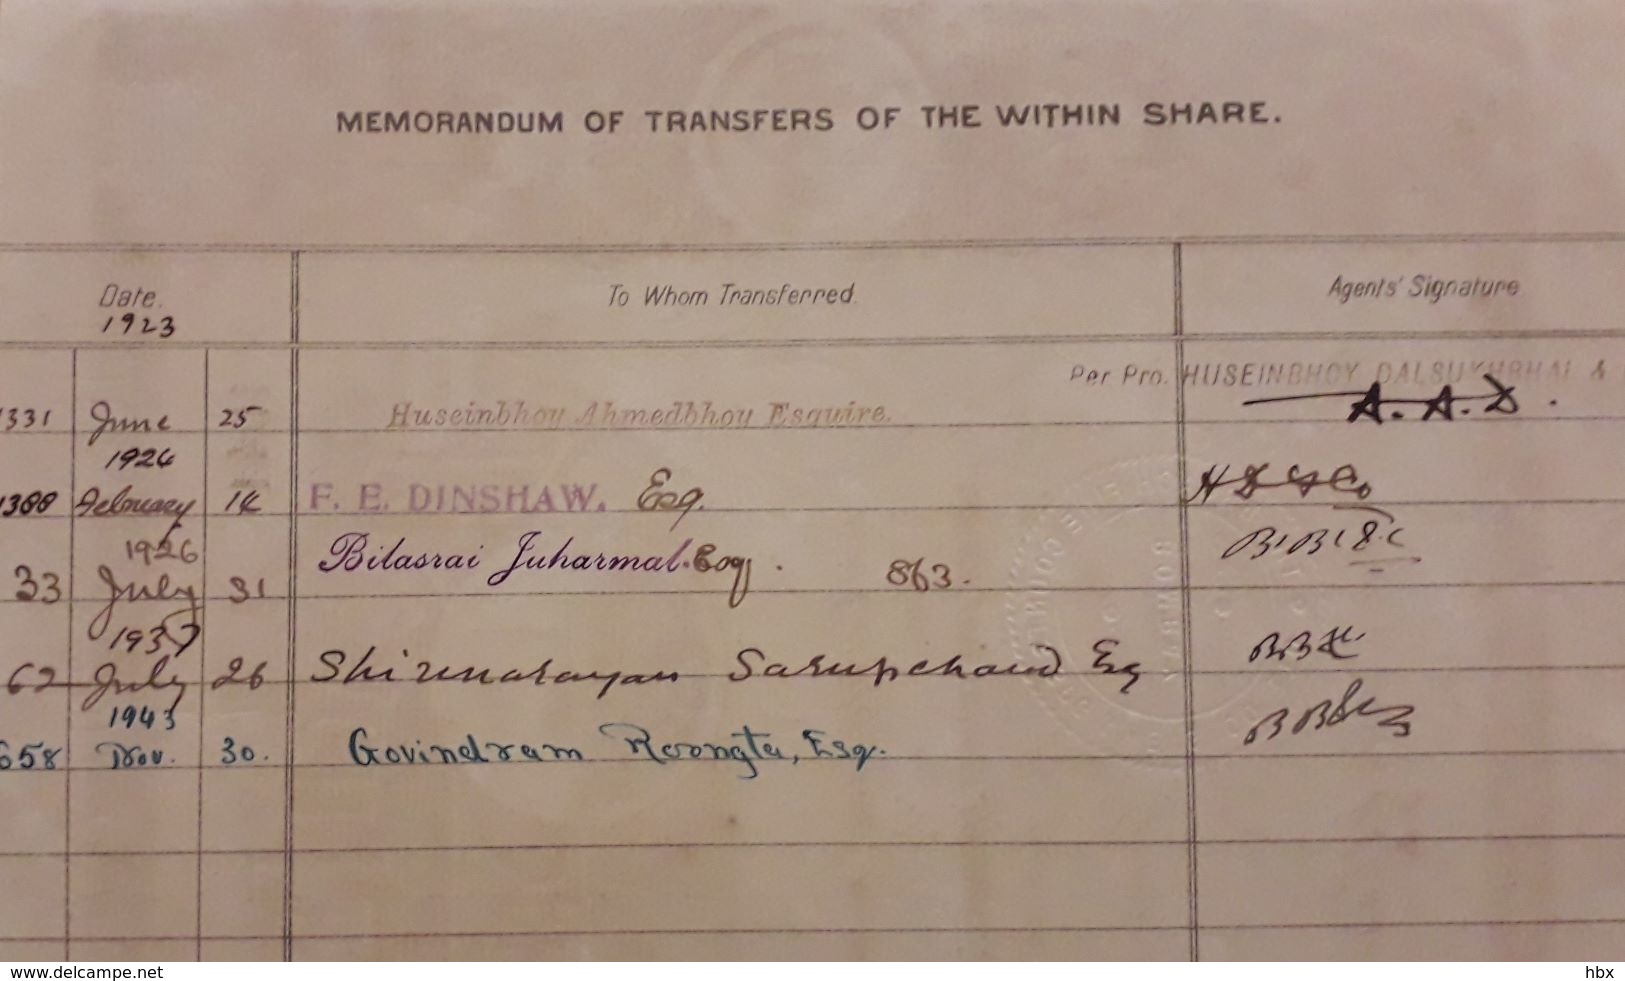 MEMORANDUM OF TRANSFERS OF THE WITHIN SHARE.
Date. To Whom Transferred. Agents' Signature
1923
Per Pro. HUSEINBHOY DALSUKHBHAI &
1331 June 25 Huseinbhoy Ahmedbhoy Esquire. A. A. D.
1924
1388 February 14 F. E. DINSHAW. Esq.
1926
33 July 31 Bilasrai Juharmal. Esq. 863.
1937
62 July 26 Shirunarayan Sarupchand Esq
1943
658 Nov. 30. Govindram Roongta, Esq.
www.delcampe.net hbx